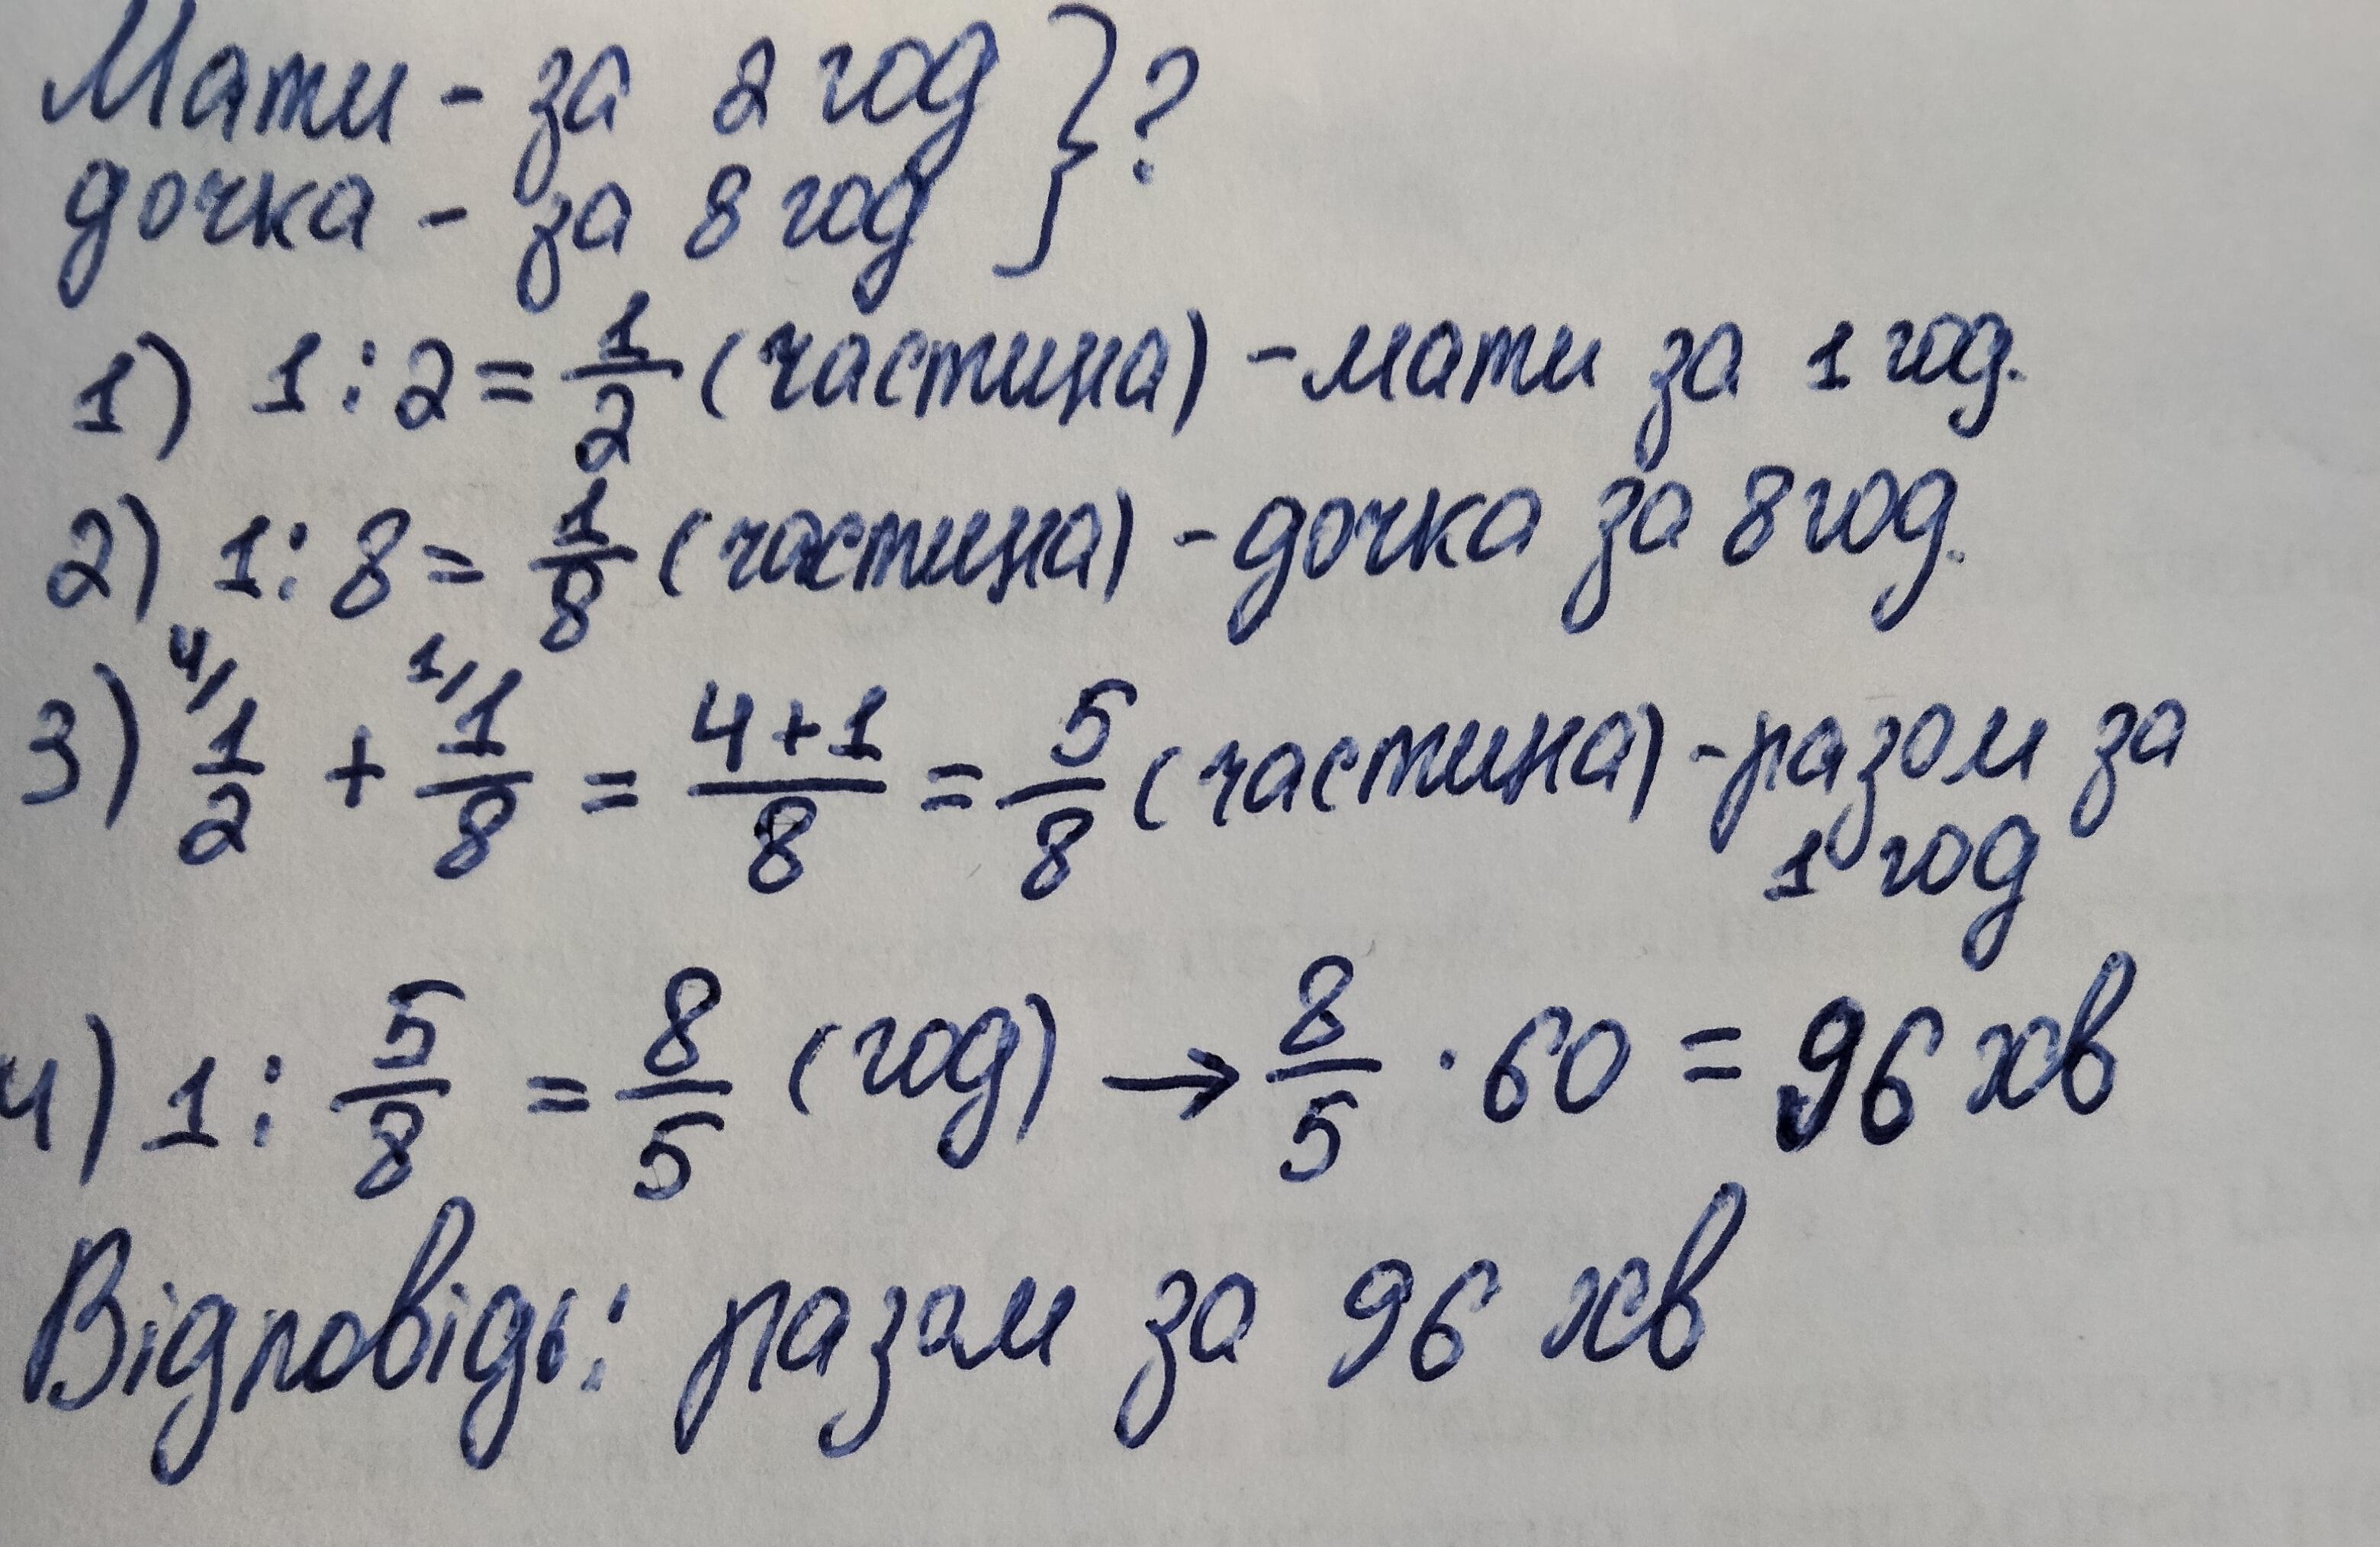 Мати - за 2 год } ?
дочка - за 8 год
1) 1 : 2 = 1/2 (частина) - мати за 1 год.
2) 1 : 8 = 1/8 (частина) - дочка за 8 год.
3) ⁴/ 1/2 + ¹/ 1/8 = (4+1)/8 = 5/8 (частина) - разом за
1 год
4) 1 : 5/8 = 8/5 (год) → 8/5 · 60 = 96 хв
Відповідь: разом за 96 хв